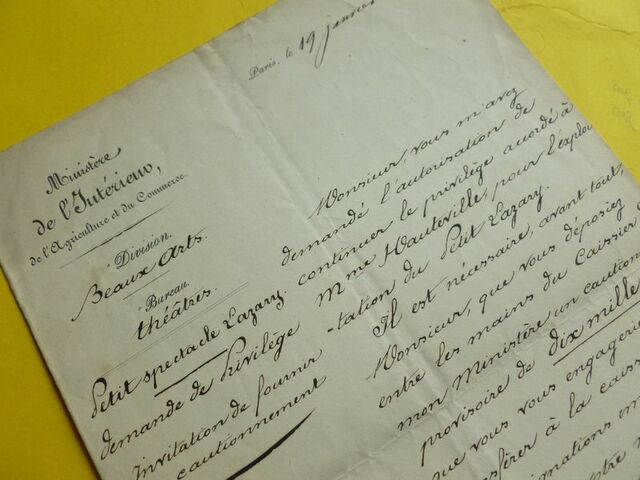 Paris, le 19 janvier
Ministère
de l'Intérieur,
de l'Agriculture et du Commerce.
Division.
Beaux Arts.
Bureau.
théâtres.
Petit spectacle Lazary.
demande de Privilège
Invitation de fournir
cautionnement
Monsieur, vous m'avez
demandé l'autorisation de
continuer le privilège accordé à
Mme Hauteville, pour l'exploi
-tation du Petit Lazary.
Il est nécessaire, avant tout,
Monsieur, que vous déposiez
entre les mains du Caissier
mon Ministère un caution
provisoire de dix mille
que vous vous engagerie
sférer à la caiss
ignations em